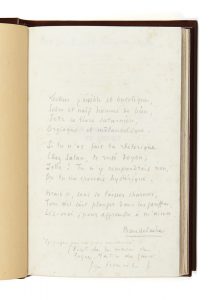 Lecteur paisible et bucolique,
Sobre et naïf homme de bien
Jette ce livre saturnien,
Orgiaque et mélancolique.
Si tu n'as fait ta rhétorique
Chez Satan, le rusé doyen,
Jette ! Tu n'y comprendrais rien,
Ou tu me croirais hystérique.
Mais si, sans se laisser charmer,
Ton œil sait plonger dans les gouffres,
Lis-moi, pour apprendre à m'aimer
Baudelaire
de la main de